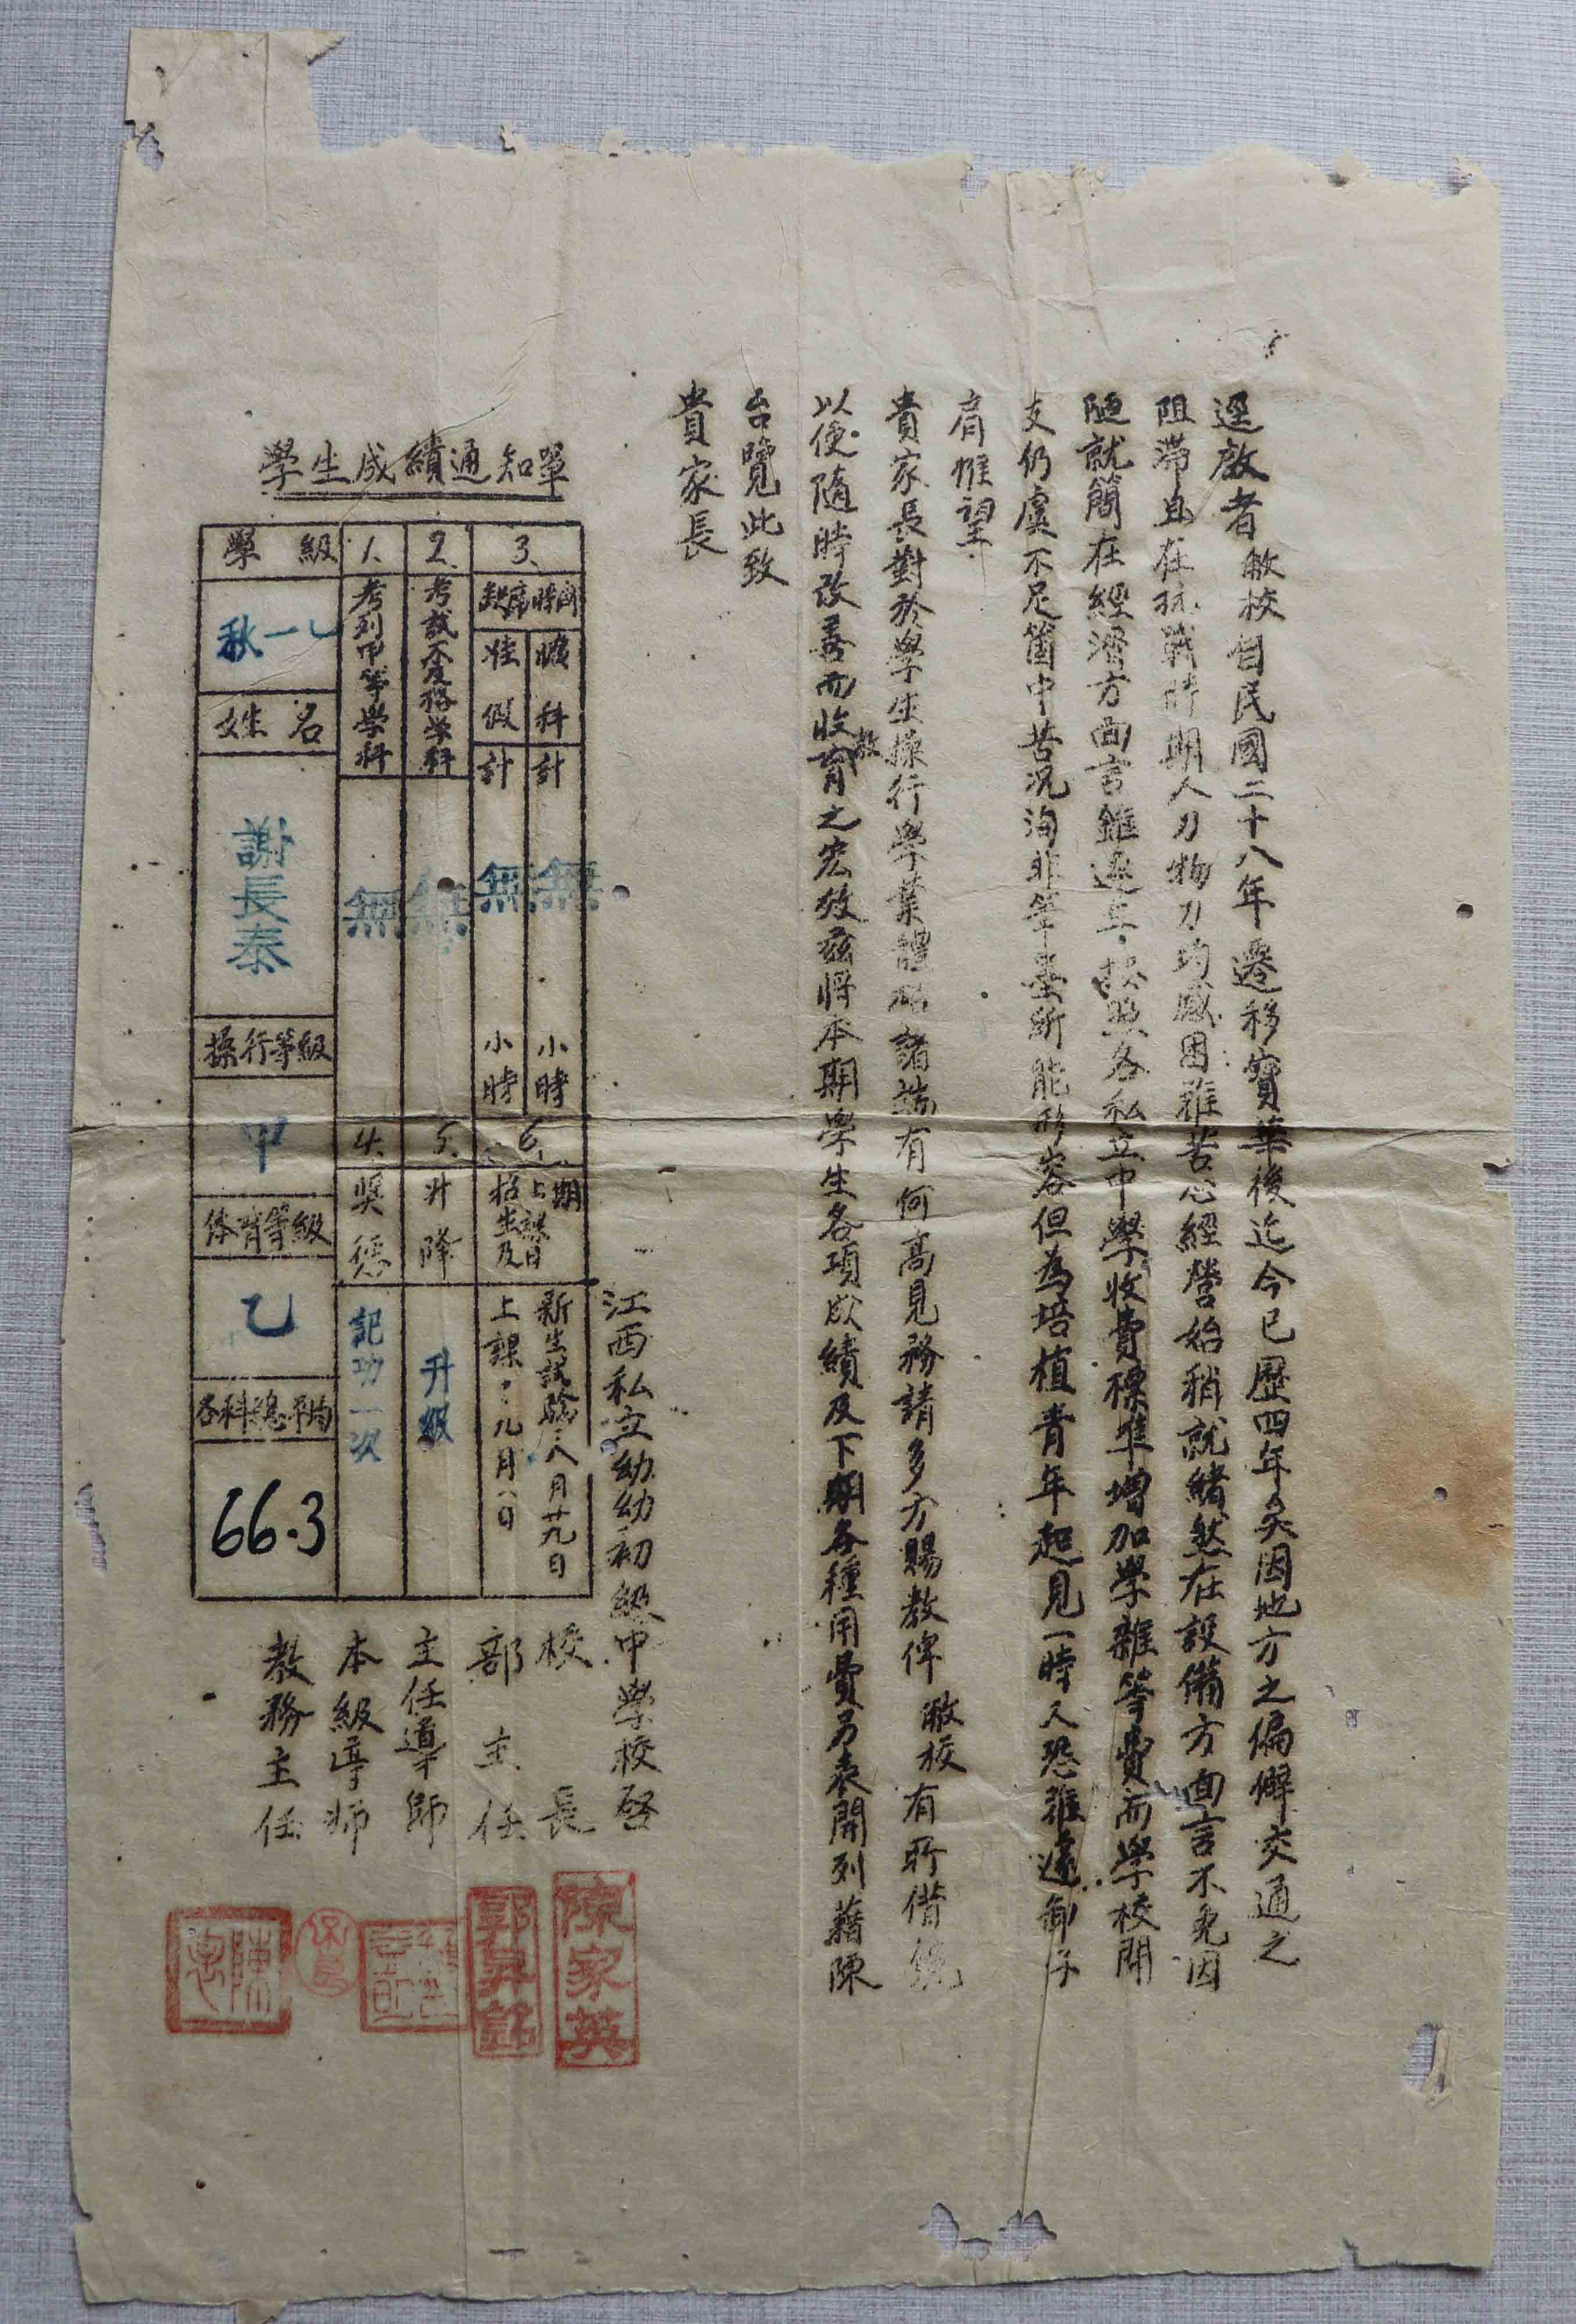 逕啟者敝校自民國二十八年遷移寶華後迄今已歷四年矣因地方之偏僻交通之
阻滯且在抗戰時期人力物力均感困難苦心經營始稍就緒然在設備方面言不免因
陋就簡在經濟方面言雖遵上按照各私立中學收費標準增加學雜等費而學校開
支仍虞不足箇中苦況洵非筆墨所能形容但為培植青年起見一時又恐難遽卸仔
肩惟望
貴家長對於學生操行學業體格諸端有何高見務請多方賜教俾敝校有所借鏡
以便隨時改善而收教育之宏效茲將本期學生各項成績及下期各種用費另表開列藉陳
台覽此致
貴家長
江西私立幼幼初級中學校啓
校長
陳家英
部主任
郭昇銘
主任導師
本級導師
教務主任
學生成績通知單
學級
秋一乙
姓名
謝長泰
操行等級
甲
体育等級
乙
各科總平均
66.3
1.
考列甲等學科
無
2.
考試不及格学科
無
3.
缺席時間
曠科
計
無
小時
假
計
無
小時
4.
奬懲
記功一次
5.
升降
升級
6.
上期招生及上課日
新生試驗：八月廿九日
上課：九月八日